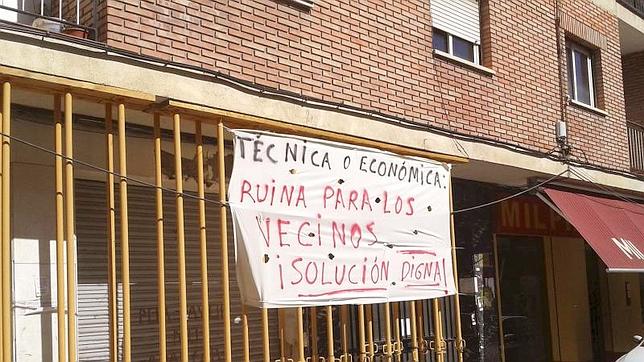 TÉCNICA O ECONÓMICA:
RUINA PARA LOS
VECINOS
¡SOLUCIÓN DIGNA!